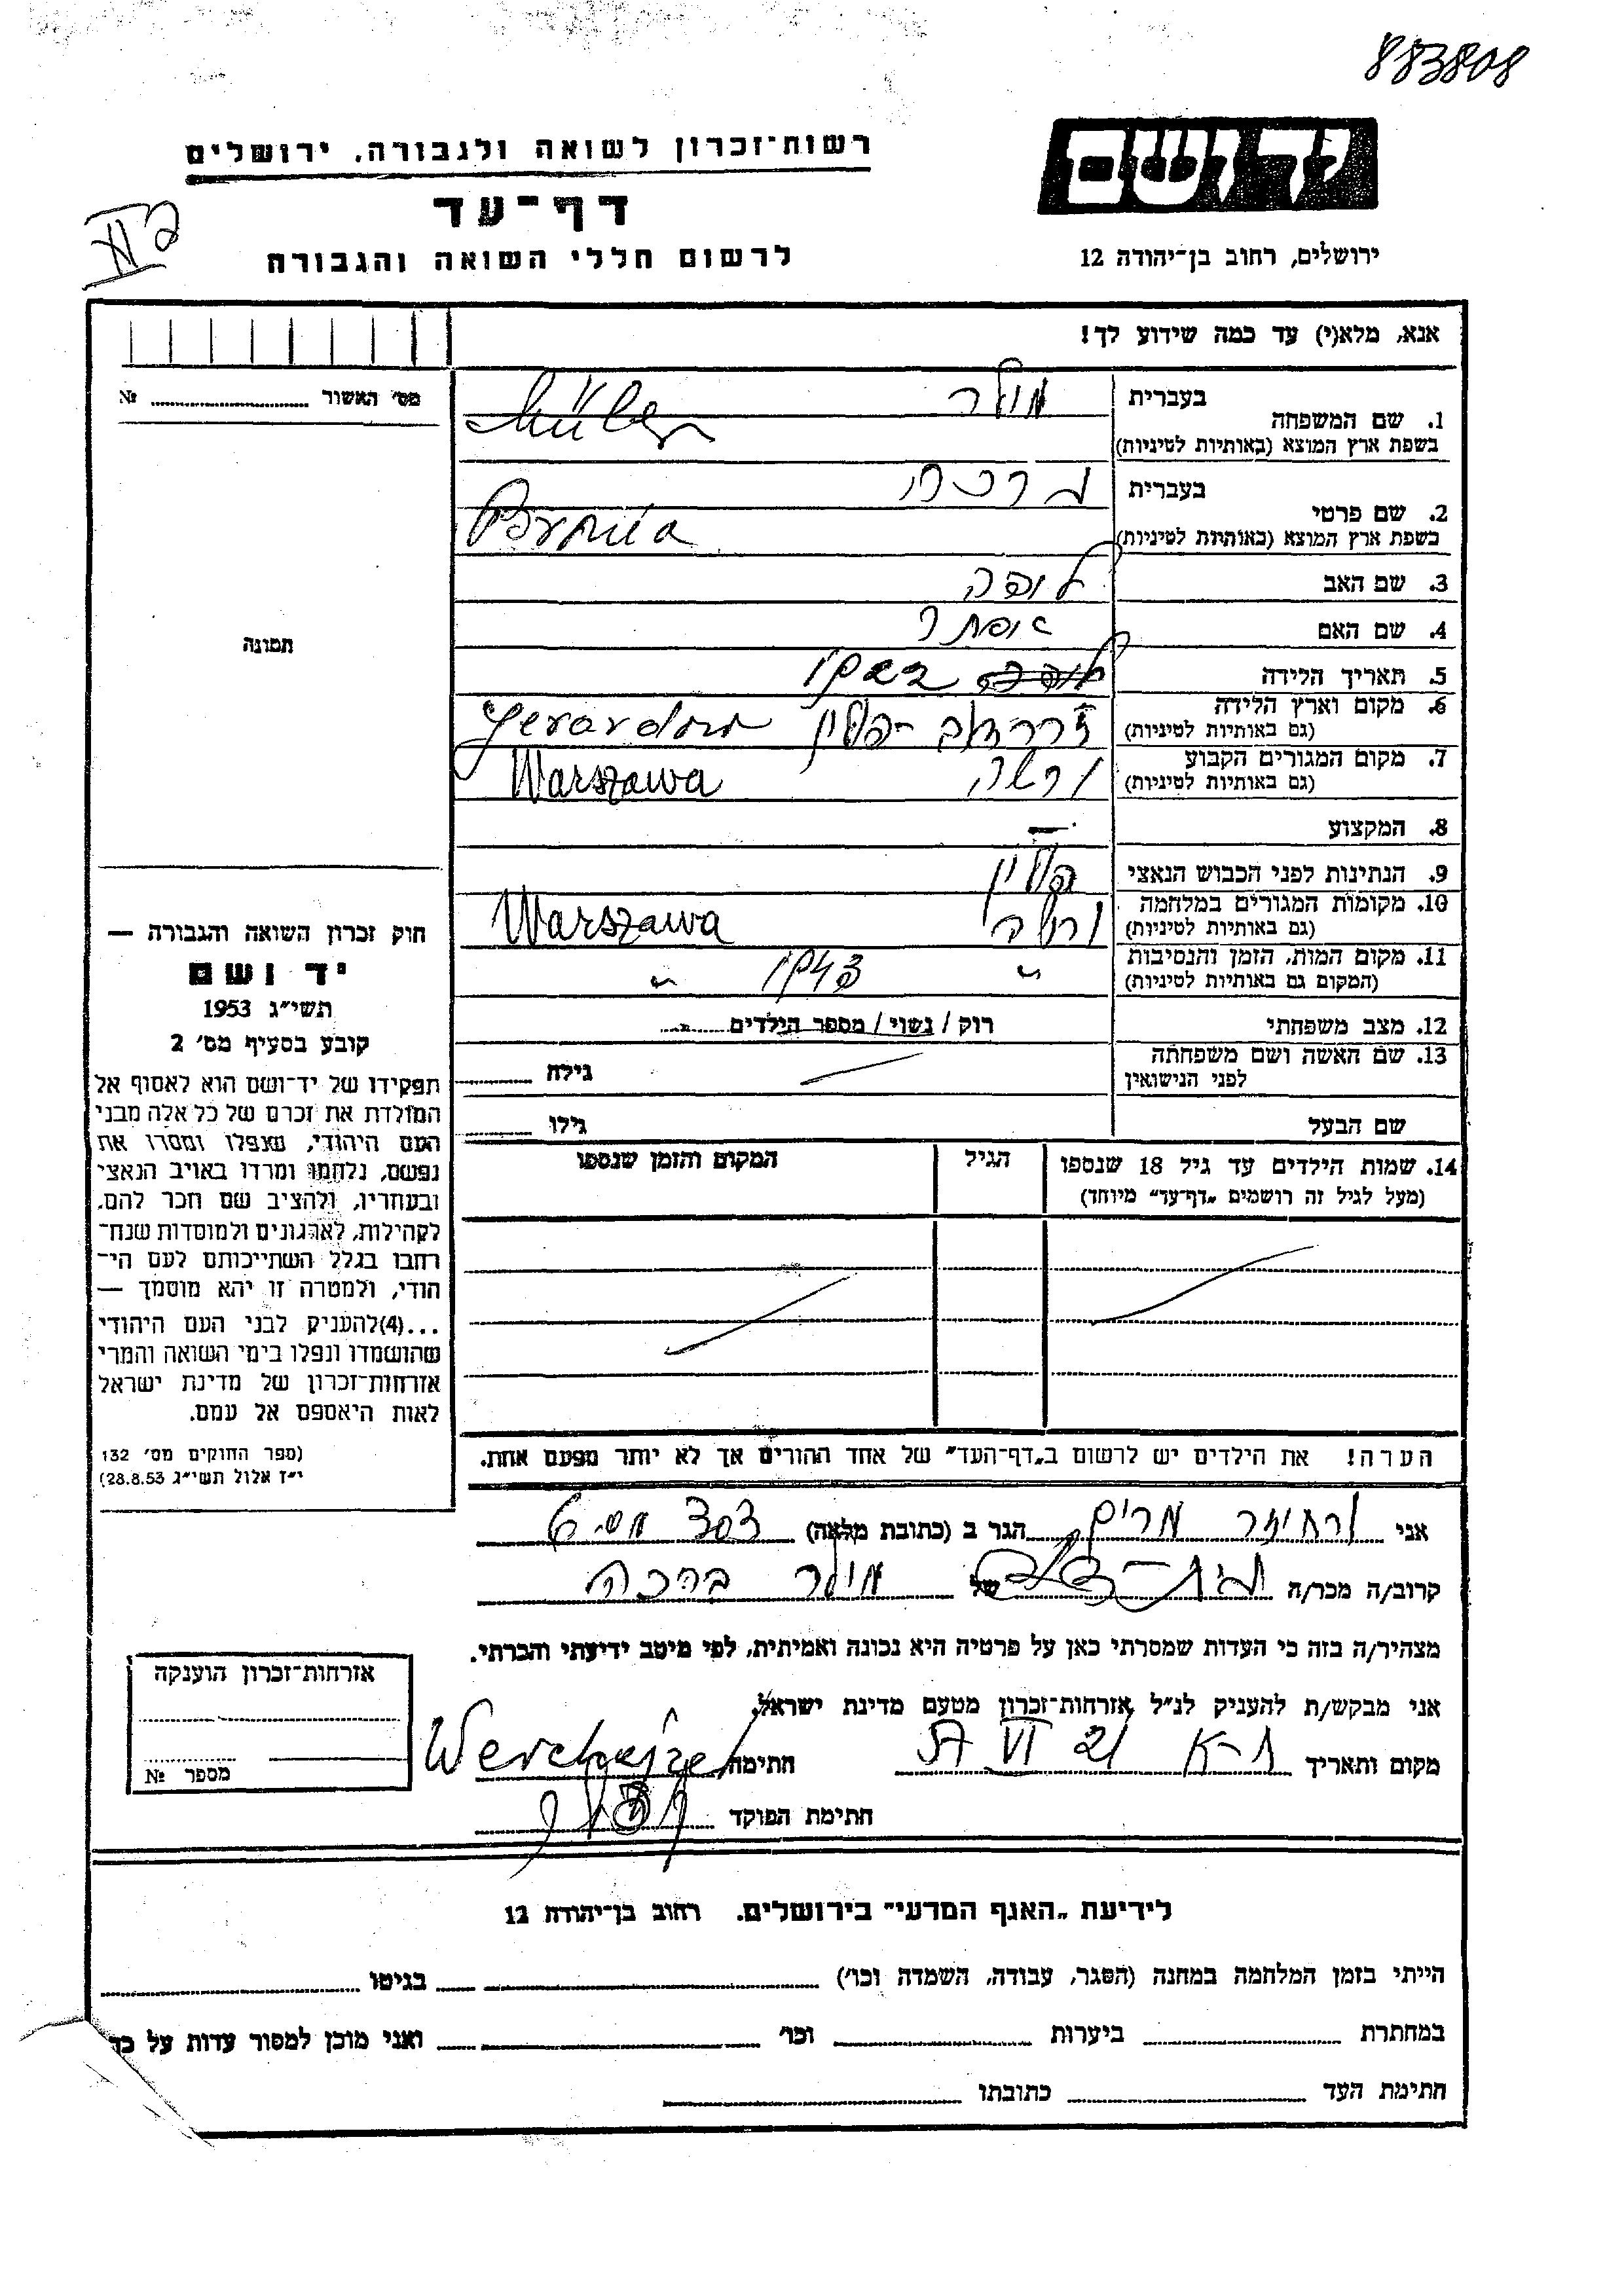 883808
רשות־זכרון לשואה ולגבורה, ירושלים
יד ושם
דף־עד
לרשום חללי השואה והגבורה
ירושלים, רחוב בן־יהודה 12
אנא, מלא(י) עד כמה שידוע לך!
מס׳ האשור № 
1. שם המשפחה
בעברית מולר
בשפת ארץ המוצא (באותיות לטיניות) Müller
2. שם פרטי
בעברית ברכה
בשפת ארץ המוצא (באותיות לטיניות) Bronia
3. שם האב
4. שם האם
5. תאריך הלידה
6. מקום וארץ הלידה
(גם באותיות לטיניות) פולין
7. מקום המגורים הקבוע ורשה Warszawa
(גם באותיות לטיניות)
8. המקצוע —
9. הנתינות לפני הכבוש הנאצי פולין
10. מקומות המגורים במלחמה ורשה Warszawa
(גם באותיות לטיניות)
11. מקום המות, הזמן והנסיבות
(המקום גם באותיות לטיניות)
12. מצב משפחתי רוק / נשוי / מספר הילדים
13. שם האשה ושם משפחתה
לפני הנישואין גילה
שם הבעל גילו
14. שמות הילדים עד גיל 18 שנספו
(מעל לגיל זה רושמים „דף־עד” מיוחד)
הגיל
המקום והזמן שנספו
הערה! את הילדים יש לרשום ב„דף־העד” של אחד ההורים אך לא יותר מפעם אחת.
תמונה
חוק זכרון השואה והגבורה —
יד ושם
תשי״ג 1953
קובע בסעיף מס׳ 2
תפקידו של יד־ושם הוא לאסוף אל
המולדת את זכרם של כל אלה מבני
העם היהודי, שנפלו ומסרו את
נפשם, נלחמו ומרדו באויב הנאצי
ובעוזריו, ולהציב שם וזכר להם,
לקהילות, לארגונים ולמוסדות שנח־
רבו בגלל השתייכותם לעם הי־
הודי, ולמטרה זו יהא מוסמך —
...(4)להעניק לבני העם היהודי
שהושמדו ונפלו בימי השואה והמרי
אזרחות־זכרון של מדינת ישראל
לאות היאספם אל עמם.
(ספר החוקים מס׳ 132
י״ז אלול תשי״ג 28.8.53)
אני מרים הגר ב (כתובת מלאה)
קרוב/ה מכר/ה של מולר ברכה
מצהיר/ה בזה כי העדות שמסרתי כאן על פרטיה היא נכונה ואמיתית, לפי מיטב ידיעתי והכרתי.
אני מבקש/ת להעניק לנ״ל אזרחות־זכרון מטעם מדינת ישראל.
מקום ותאריך ת-א 21 VI 57 חתימה
חתימת הפוקד
אזרחות־זכרון הוענקה
מספר №
לידיעת „האגף המדעי” בירושלים. רחוב בן־יהודה 12
הייתי בזמן המלחמה במחנה (הסגר, עבודה, השמדה וכו׳) בגיטו
במחתרת ביערות וכו׳ ואני מוכן למסור עדות על כך
חתימת העד כתובתו